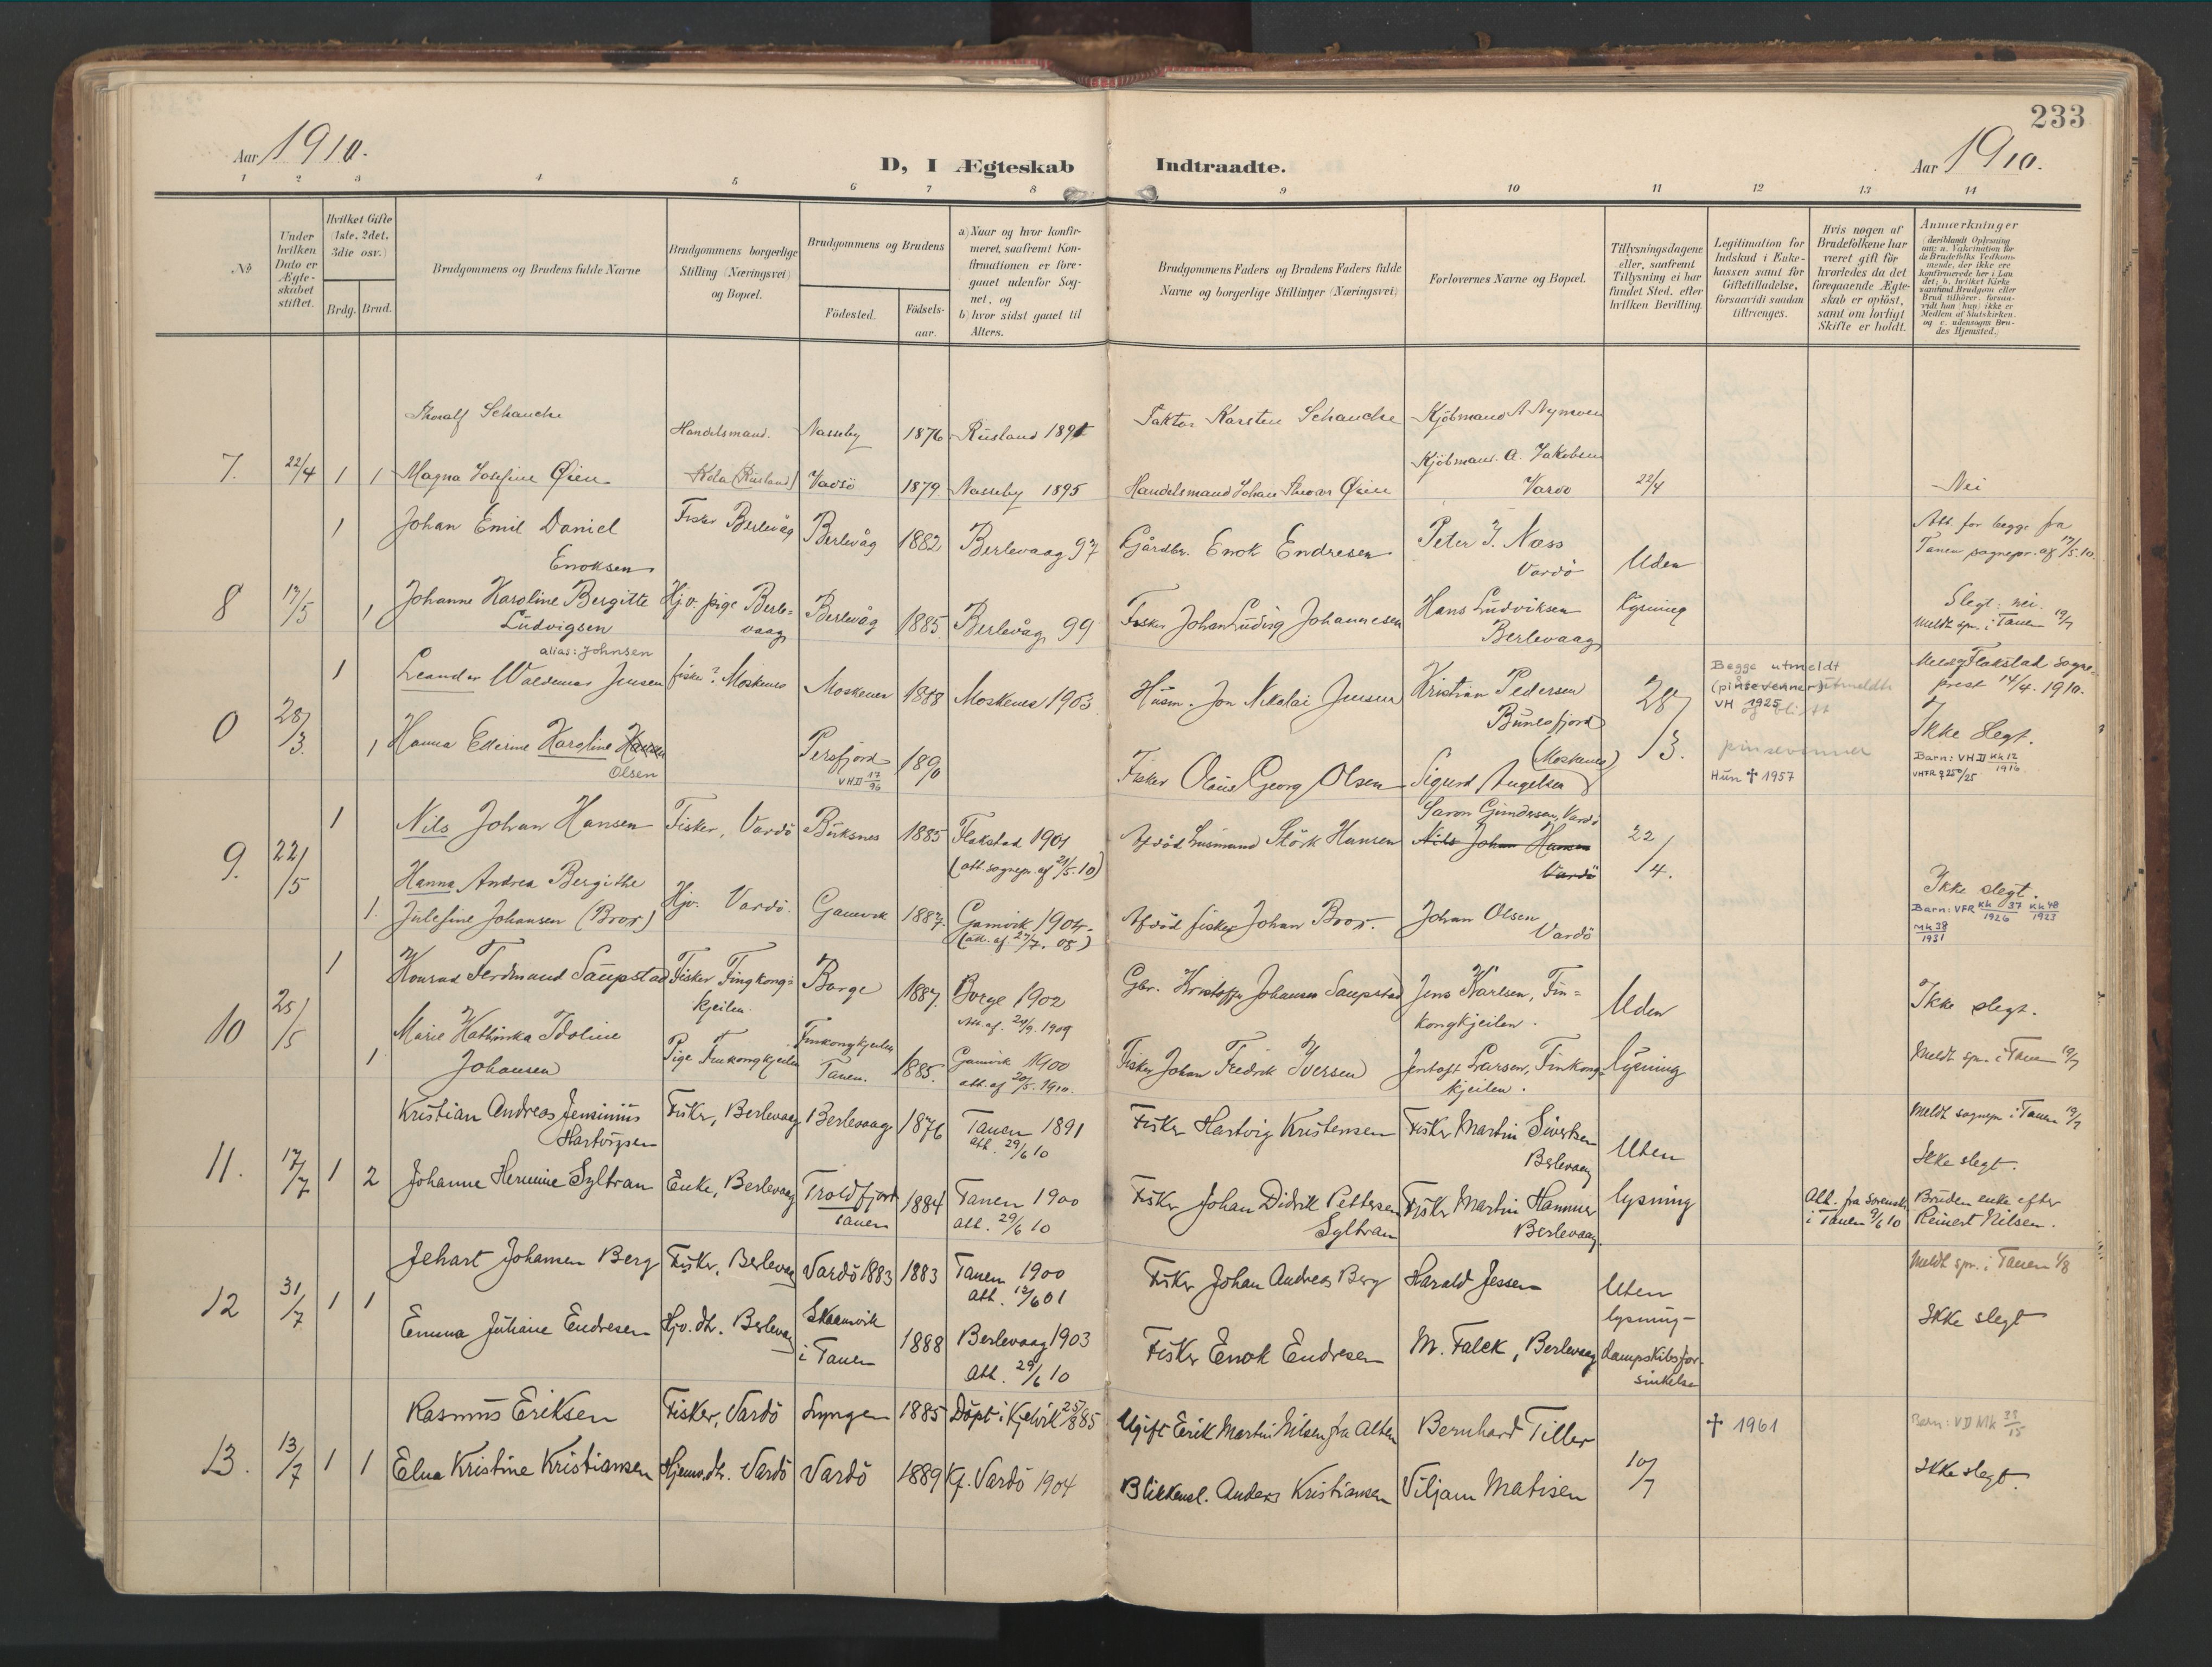 233
Aar 1910.
D, I Ægteskab Indtraadte.
Aar 1910.
1 2 3 4 5 6 7 8 9 10 11 12 13 14
№
Under hvilken Dato er Ægte-skabet stiftet.
Hvilket Gifte (1ste, 2det, 3die osv.)
Brdg. Brud.
Brudgommens og Brudens fulde Navne
Brudgommens borgerlige Stilling (Næringsvei) og Bopæl.
Brudgommens og Brudens
Fødested.
Fødsels-aar.
a) Naar og hvor konfir-meret, saafremt Kon-firmationen er fore-gaaet udenfor Sog-net, og
b) hvor sidst gaaet til Alters.
Brudgommens Faders og Brudens Faders fulde Navne og borgerlige Stillinger (Næringsvei)
Forlovernes Navne og Bopæl.
Tillysningsdagene eller, saafremt Tillysning ei har fundet Sted, efter hvilken Bevilling.
Legitimation for Indskud i Enke-kassen samt for Giftetilladelse, forsaavidt saadan tiltrænges.
Hvis nogen af Brudefolkene har været gift før hvorledes da det foregaaende Ægte-skab er opløst, samt om lovligt Skifte er holdt.
Anmærkninger
(deriblandt Oplysning om: a. Vakcination for de Brudefolks Vedkom-mende, der ikke ere konfirmerede her i Lan-det; b. hvilket Kirke-samfund Brudgom eller Brud tilhører, forsaa-vidt han (hun) ikke er Medlem af Statskirken, og c. udensogns Bru-des Hjemsted.)
Thoralf Schanche
Handelsmand. Nasseby 1876 Rusland 189
Faktor Karsten Schanche Kjöbmand A Nymoen
7. 22/4 1 1 Magna Josefine Øien Kola (Rusland) Vadsö 1879 Nasseby 1895
Handelsmand Johan Øien Kjöbmand. A. Jakobsen
Vardö 22/4 Nei
1 Johan Emil Daniel Enoksen Fisker Berlevåg Berlevåg 1882 Berlevaag 97
Gårdbr. Enok Endresen Peter J. Næss Vardö Uden
Att. for begge fra Tanen sognepr. af 17/5.10.
8 17/5 1 Johanne Karoline Bergitte Ludvigsen Hjv. pige Berle-vaag Berlevåg 1885 Berlevåg 99
alias: Johnsen
Fisker Johan Ludvig Johannesen Hans Ludviksen Berlevaag lysning
Slegt: nei.
Meldt spr. i Tanen 19/7
1 Leander Waldemar Jensen fisker? Moskenes Moskenes 1888 Moskenes 1903
Husm. Jon Nikolai Jensen Kristian Pedersen Bunesfjord (Moskenes) 28/13.
Begge utmeldt (pinsevenner) utmeldt
VH 1925
Meldt Flakstad sogne-prest 14/4. 1910.
0 28/3. 1 Hanna Karoline Hansen Olsen Persfjord 1890
VHD 17/96
Fisker Olaus Georg Olsen Sigurd Angelsen
pinsevenner
Hun † 1957
Ikke slegt.
Barn: VHD Kk 12/1916
1 Nils Johan Hansen Fisker, Vardö Buksnes 1885 Flakstad 1901
(att. sognepr. af 21/5. 10)
Afdöd husmand Störk Hansen Saron Gundersen, Vardö
Nils Johan Hansen Vardö 22/4.
9. 22/5 1. Hanna Andrea Bergithe Julefine Johansen (Bror) Hjv. Vardö. Gamvik 1887. Gamvik 1904.
(att. af. 27/7. 08)
Afdöd fisker Johan Bror. Johan Olsen Vardö
Ikke slegt.
Barn: VFR Kk 37/1926 Kk 48/1923
Mk 38/1931
1 Konrad Ferdinand Saupstad Fisker Fingkong-kjeilen. Borge 1887. Borge 1902
Att. af. 20/9. 1909
Gbr. Kristoffer Johansen Saupstad Jens Karlsen, Fin-kongkjeilen. Uden
Ikke slegt.
10 25/5 1 Marie Kathinka Idoline Johansen Pige Finkongkjeilen Finkongkjeilen Tanen. 1885. Gamvik 1900
att. af 20/5. 1910.
Fisker Johan Fredrik Iversen Jentoft Larsen, Finkong-kjeilen. lysning
Meldt spr. i Tanen 19/7
Kristian Andreas Jeminius Hartvigsen Fisker, Berlevaag Berlevaag 1876 Tanen 1891
att. 29/6 10
Fisker Hartvig Kristensen Fisker Martin Sivertsen Berlevaag Uten
Meldt sognepr i Tanen 19/7
Ikke slegt.
11. 17/7 1 2 Johanne Hermine Syltran Enke, Berlevaag Troldfjord Tanen 1884 Tanen 1900
att. 29/6 10
Fisker Johan Didrik Pettersen Syltran Fisker Martin Hammer Berlevaag. lysning
Att. fra Sorenskr. i Tanen 9/6 10
Bruden enke efter Reinert Nilsen.
Jehart Johansen Berg Fisker, Berlevaag Vardö 1883 1883 Tanen 1900
att. 12/6 01
Fisker Johan Andreas Berg Harald Jessen Uten lysning-
Meldt spr. i Tanen 1/8
12 31/7 1 1 Emma Juliane Endresen Hjv. dt. Berlevaag Skaanvik i Tanen 1888 Berlevaag 1903
Att. 29/6 10
Fisker Enok Endresen M. Falck, Berlevaag dampskibsfor-sinkelse
Ikke slegt
Rasmus Eriksen Fisker, Vardö Lyngen 1885 Döpt i Kjelvik 25/8 85
Ugift Erik Martin Nilsen fra Alten Bernhard Tiller
† 1961
Barn: VD Mk 38/15
13. 13/7 1 1 Elna Kristine Kristiansen Hjemv. dt. Vardö Vardö 1889 Kf. Vardö 1904
Blikkensl. Anders Kristiansen Viljam Matisen 10/7
Ikke slegt.